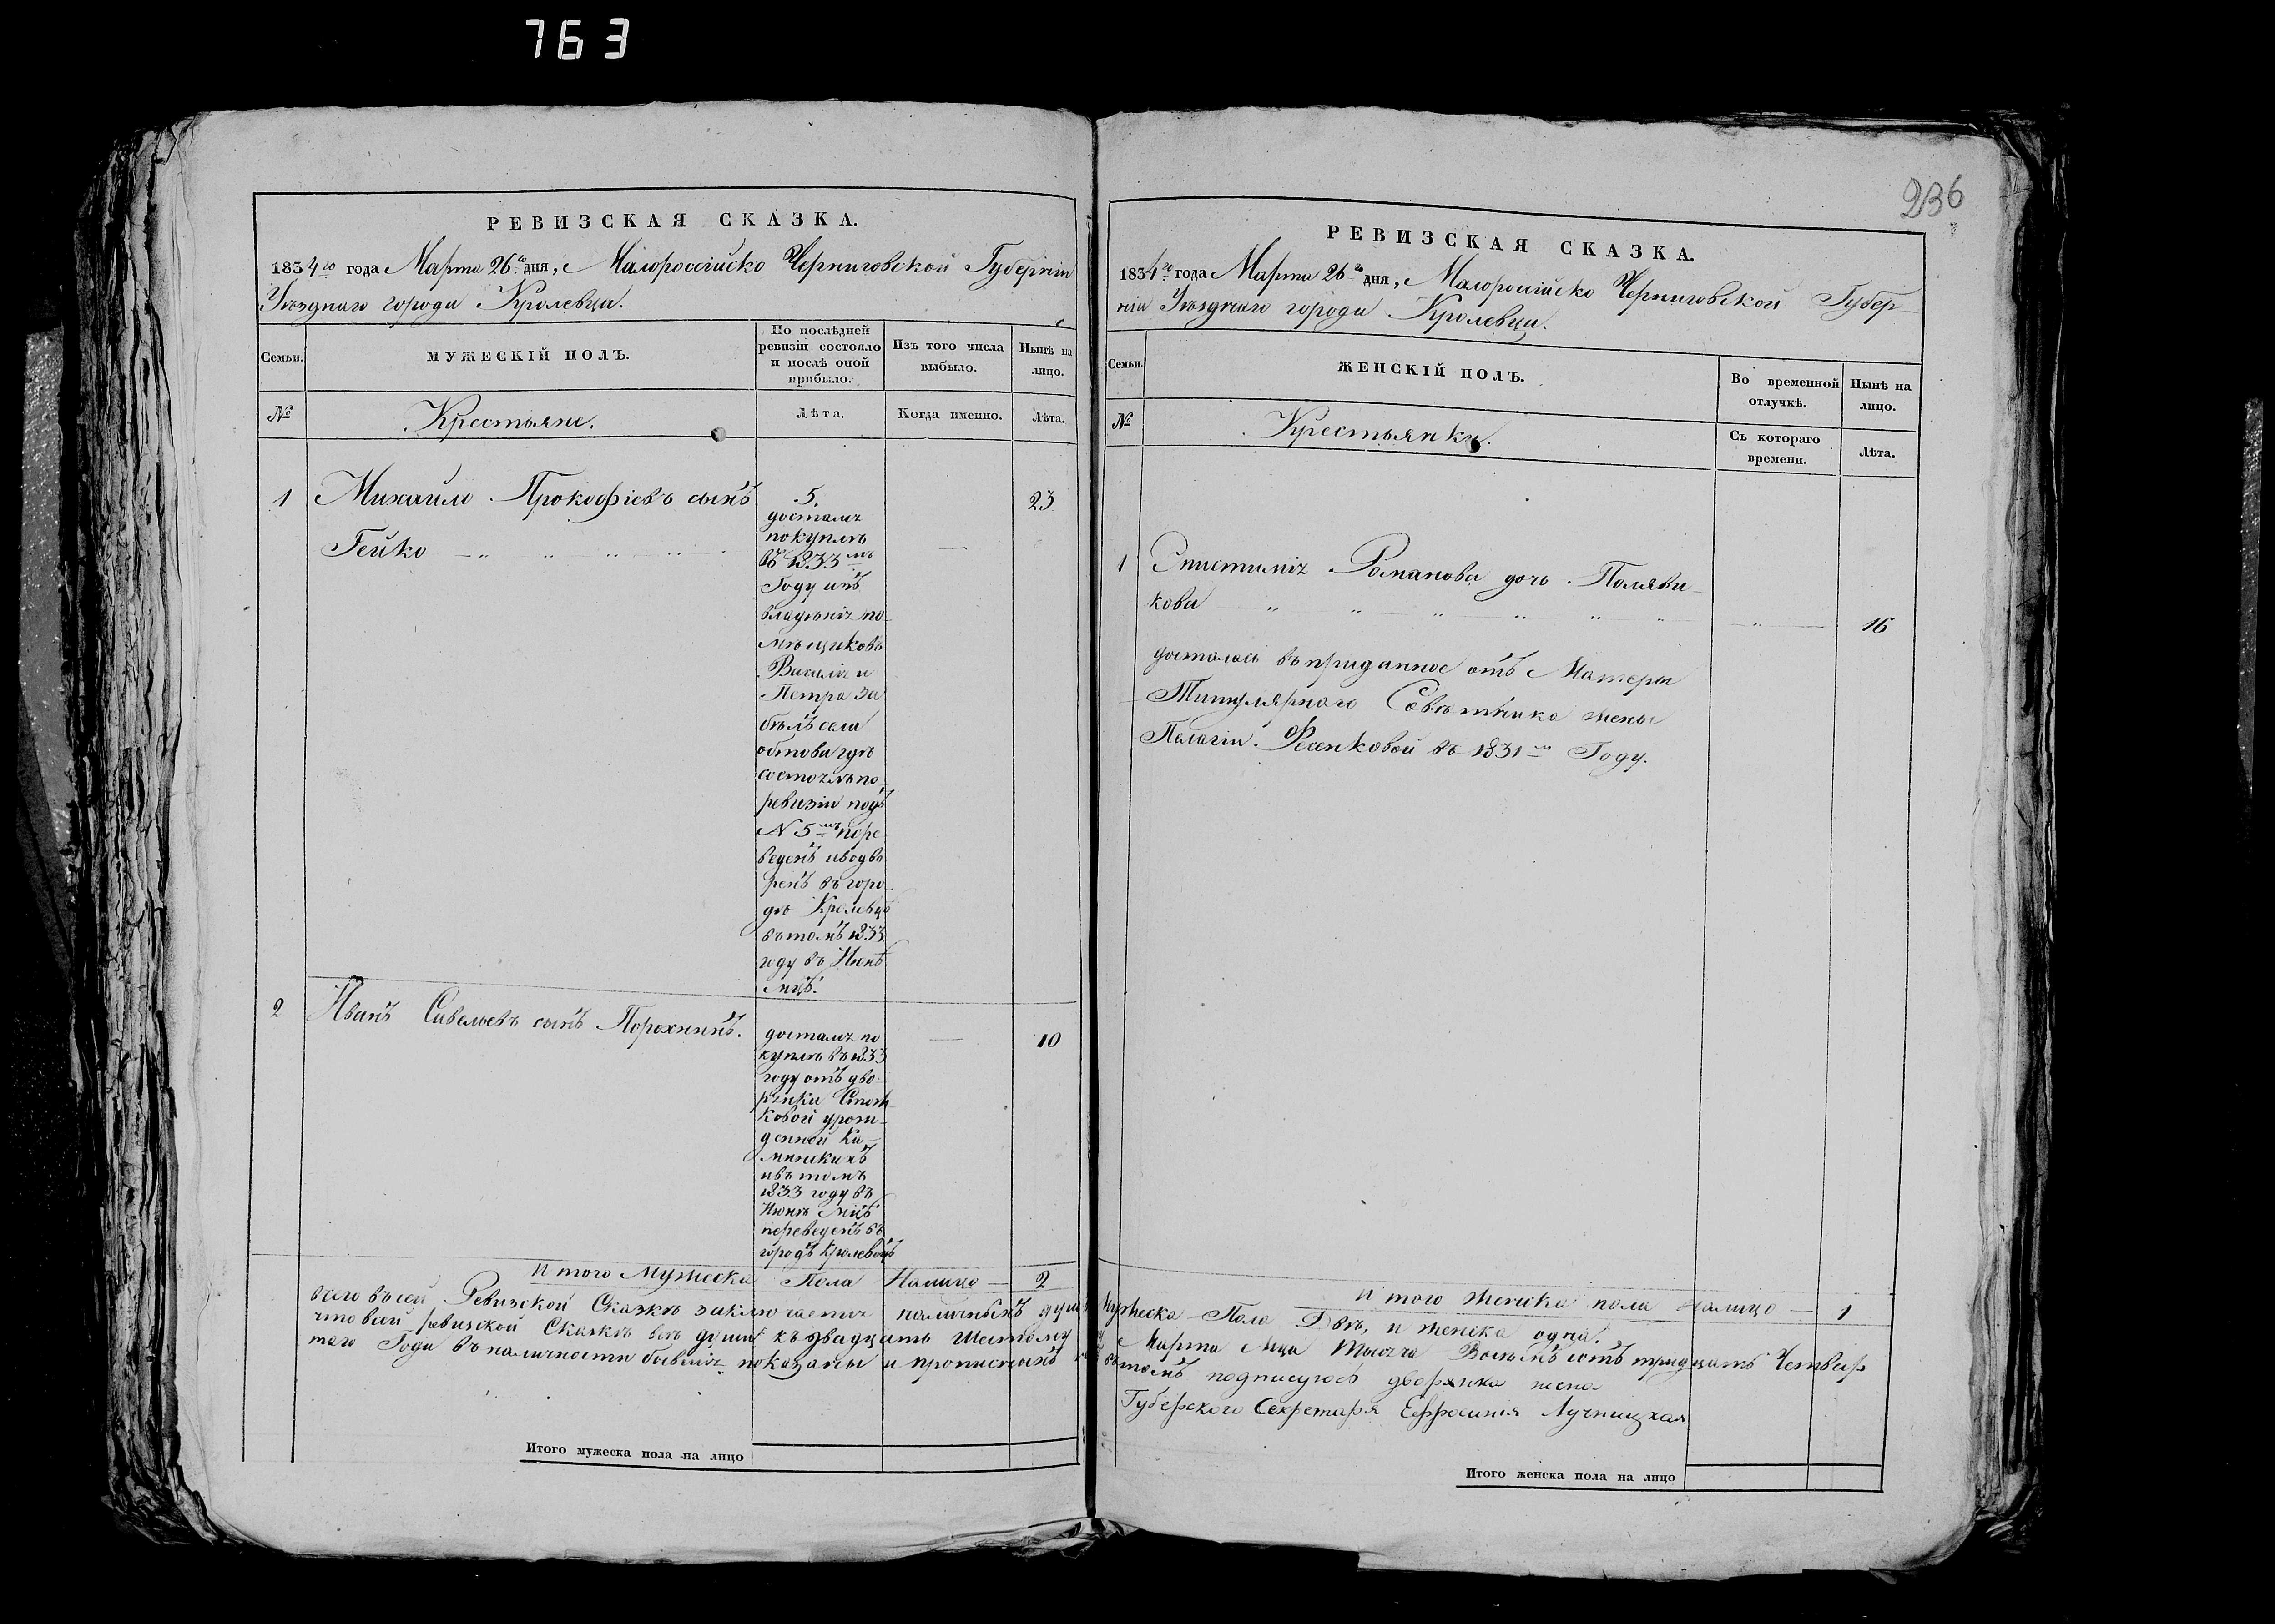 763
236
РЕВИЗСКАЯ СКАЗКА.
1834го года Марта 26го дня, Малороссійско Черниговской Губерніи
Уѣзднаго города Кролевца.
Семьи.
МУЖЕСКІЙ ПОЛЪ.
По послѣдней
ревизіи состояло
и послѣ оной
прибыло.
Изъ того числа
выбыло.
Нынѣ на
лицо.
№
Крестьяне.
Лѣта.
Когда именно.
Лѣта.
1
Михайло Прокофіевъ сынъ
Гейко
5.
23
досталъ
покупкѣ
въ 1833мъ
Году отъ
владѣнія по-
мѣщиковъ
Василія и
Петра За
бѣлъ села
гдѣ
состоялъ по
ревизіи подъ
N 5мъ пере
веденъ и водво
ренъ въ горо-
дѣ Кролевцѣ
въ томъ 1833
году въ Июнѣ
мцѣ.
2
Иванъ Савельевъ сынъ Порохнинъ.
10
достался по
купкѣ въ 1833
году отъ дво-
рянки
ковой урож-
денной Ка-
минскихъ
и въ томъ
1833 году въ
Июнѣ мцѣ
переведенъ въ
городъ Кролевецъ
Итого Мужеска Пола Налицо — 2
всего въ сей Ревизской Сказкѣ заключается наличныхъ душъ
что всей ревизской Сказкѣ всѣ души къ двадцать шестому
таго Года въ наличности бывшія показаны и прописанъ
Итого мужеска пола на лицо
РЕВИЗСКАЯ СКАЗКА.
1834го года Марта 26го дня, Малороссійско Черниговской Губер-
ніи Уѣзднаго города Кролевца.
Семьи.
ЖЕНСКІЙ ПОЛЪ.
Во временной
отлучкѣ.
Нынѣ на
лицо.
№
Крестьянки.
Съ котораго
времени.
Лѣта.
1
Епистимія Романова дочь Поляви-
кова
16
досталась въ приданное отъ Матери
Титулярнаго Совѣтника жены
Палагіи Фесенковой въ 1831м Году.
Итого женска пола налицо — 1
Мужеска Пола Двѣ, и женска одна.
Марта мца Тысяча Восемъ сотъ тридцать Четвер
въ томъ подписуюсь дворянка жена
Губерского Секретаря Ефросинія Лучницкая
Итого женска пола на лицо